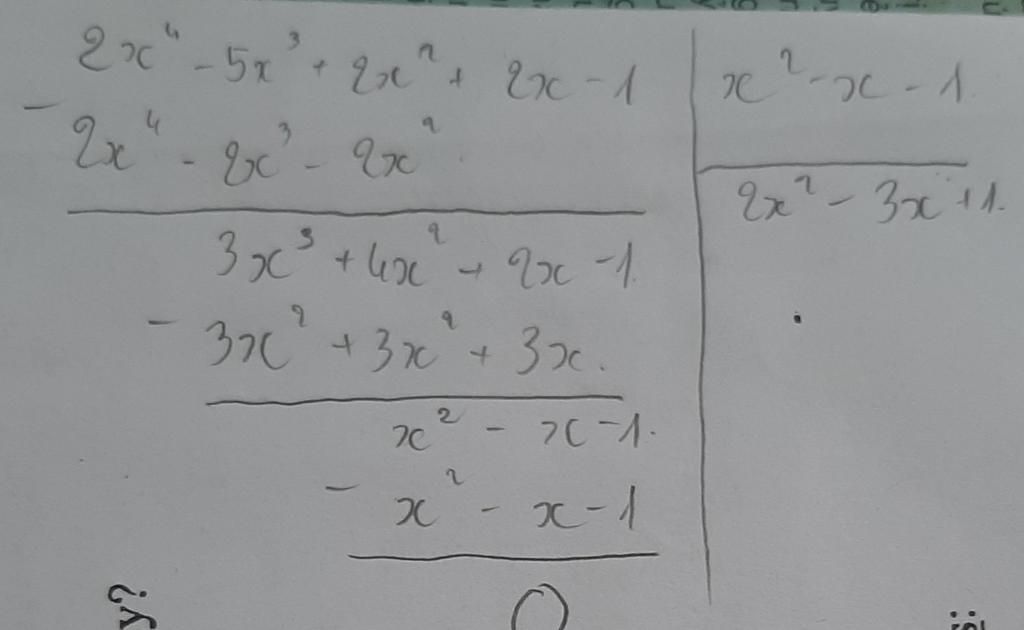 2x⁴ - 5x³ + 2x² + 2x - 1 | x² - x - 1
- 2x⁴ - 2x³ - 2x² | 2x² - 3x + 1.
3x³ + 4x² + 2x - 1
- 3x² + 3x² + 3x.
x² - x - 1.
- x² - x - 1
0
y?